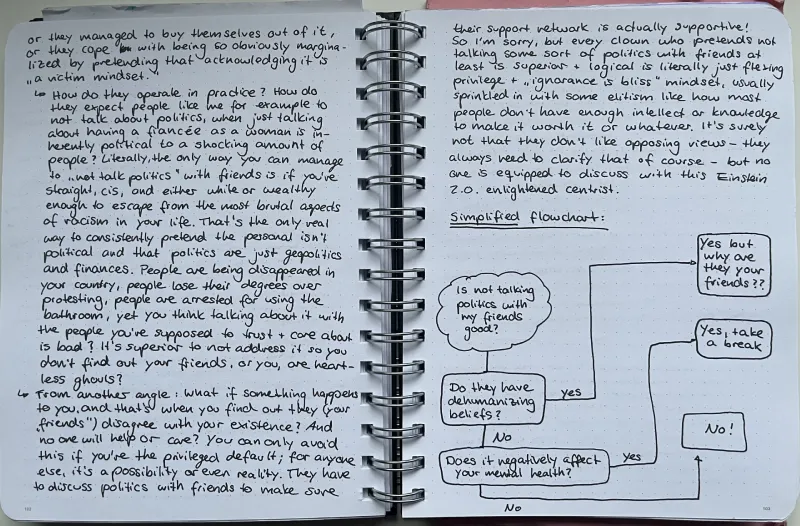 or they managed to buy themselves out of it,
or they cope with being so obviously margina-
lized by pretending that acknowledging it is
„a victim mindset."
↳ How do they operate in practice? How do
they expect people like me for example to
not talk about politics, when just talking
about having a fiancée as a woman is in-
herently political to a shocking amount of
people? Literally, the only way you can manage
to „not talk politics" with friends is if you're
straight, cis, and either white or wealthy
enough to escape from the most brutal aspects
of racism in your life. That's the only real
way to consistently pretend the personal isn't
political and that politics are just geopolitics
and finances. People are being disappeared in
your country, people lose their degrees over
protesting, people are arrested for using the
bathroom, yet you think talking about it with
the people you're supposed to trust + care about
is bad? It's superior to not address it so you
don't find out your friends, or you, are heart-
less ghouls?
↳ From another angle: what if something happens
to you, and that's when you find out they (your
„friends") disagree with your existence? And
no one will help or care? You can only avoid
this if you're the privileged default; for anyone
else, it's a possibility or even reality. They have
to discuss politics with friends to make sure
102
their support network is actually supportive!
So I'm sorry, but every clown who pretends not
talking some sort of politics with friends at
least is superior + logical is literally just flexing
privilege + „ignorance is bliss" mindset, usually
sprinkled in with some elitism like how most
people don't have enough intellect or knowledge
to make it worth it or whatever. It's surely
not that they don't like opposing views - they
always need to clarify that of course - but no
one is equipped to discuss with this Einstein
2.0. enlightened centrist.
Simplified flowchart:
Is not talking
politics with
my friends
good?
Yes but
why are
they your
friends??
Yes, take
a break
Do they have
dehumanizing
beliefs?
yes
No
No!
Does it negatively affect
your mental health?
yes
No
103